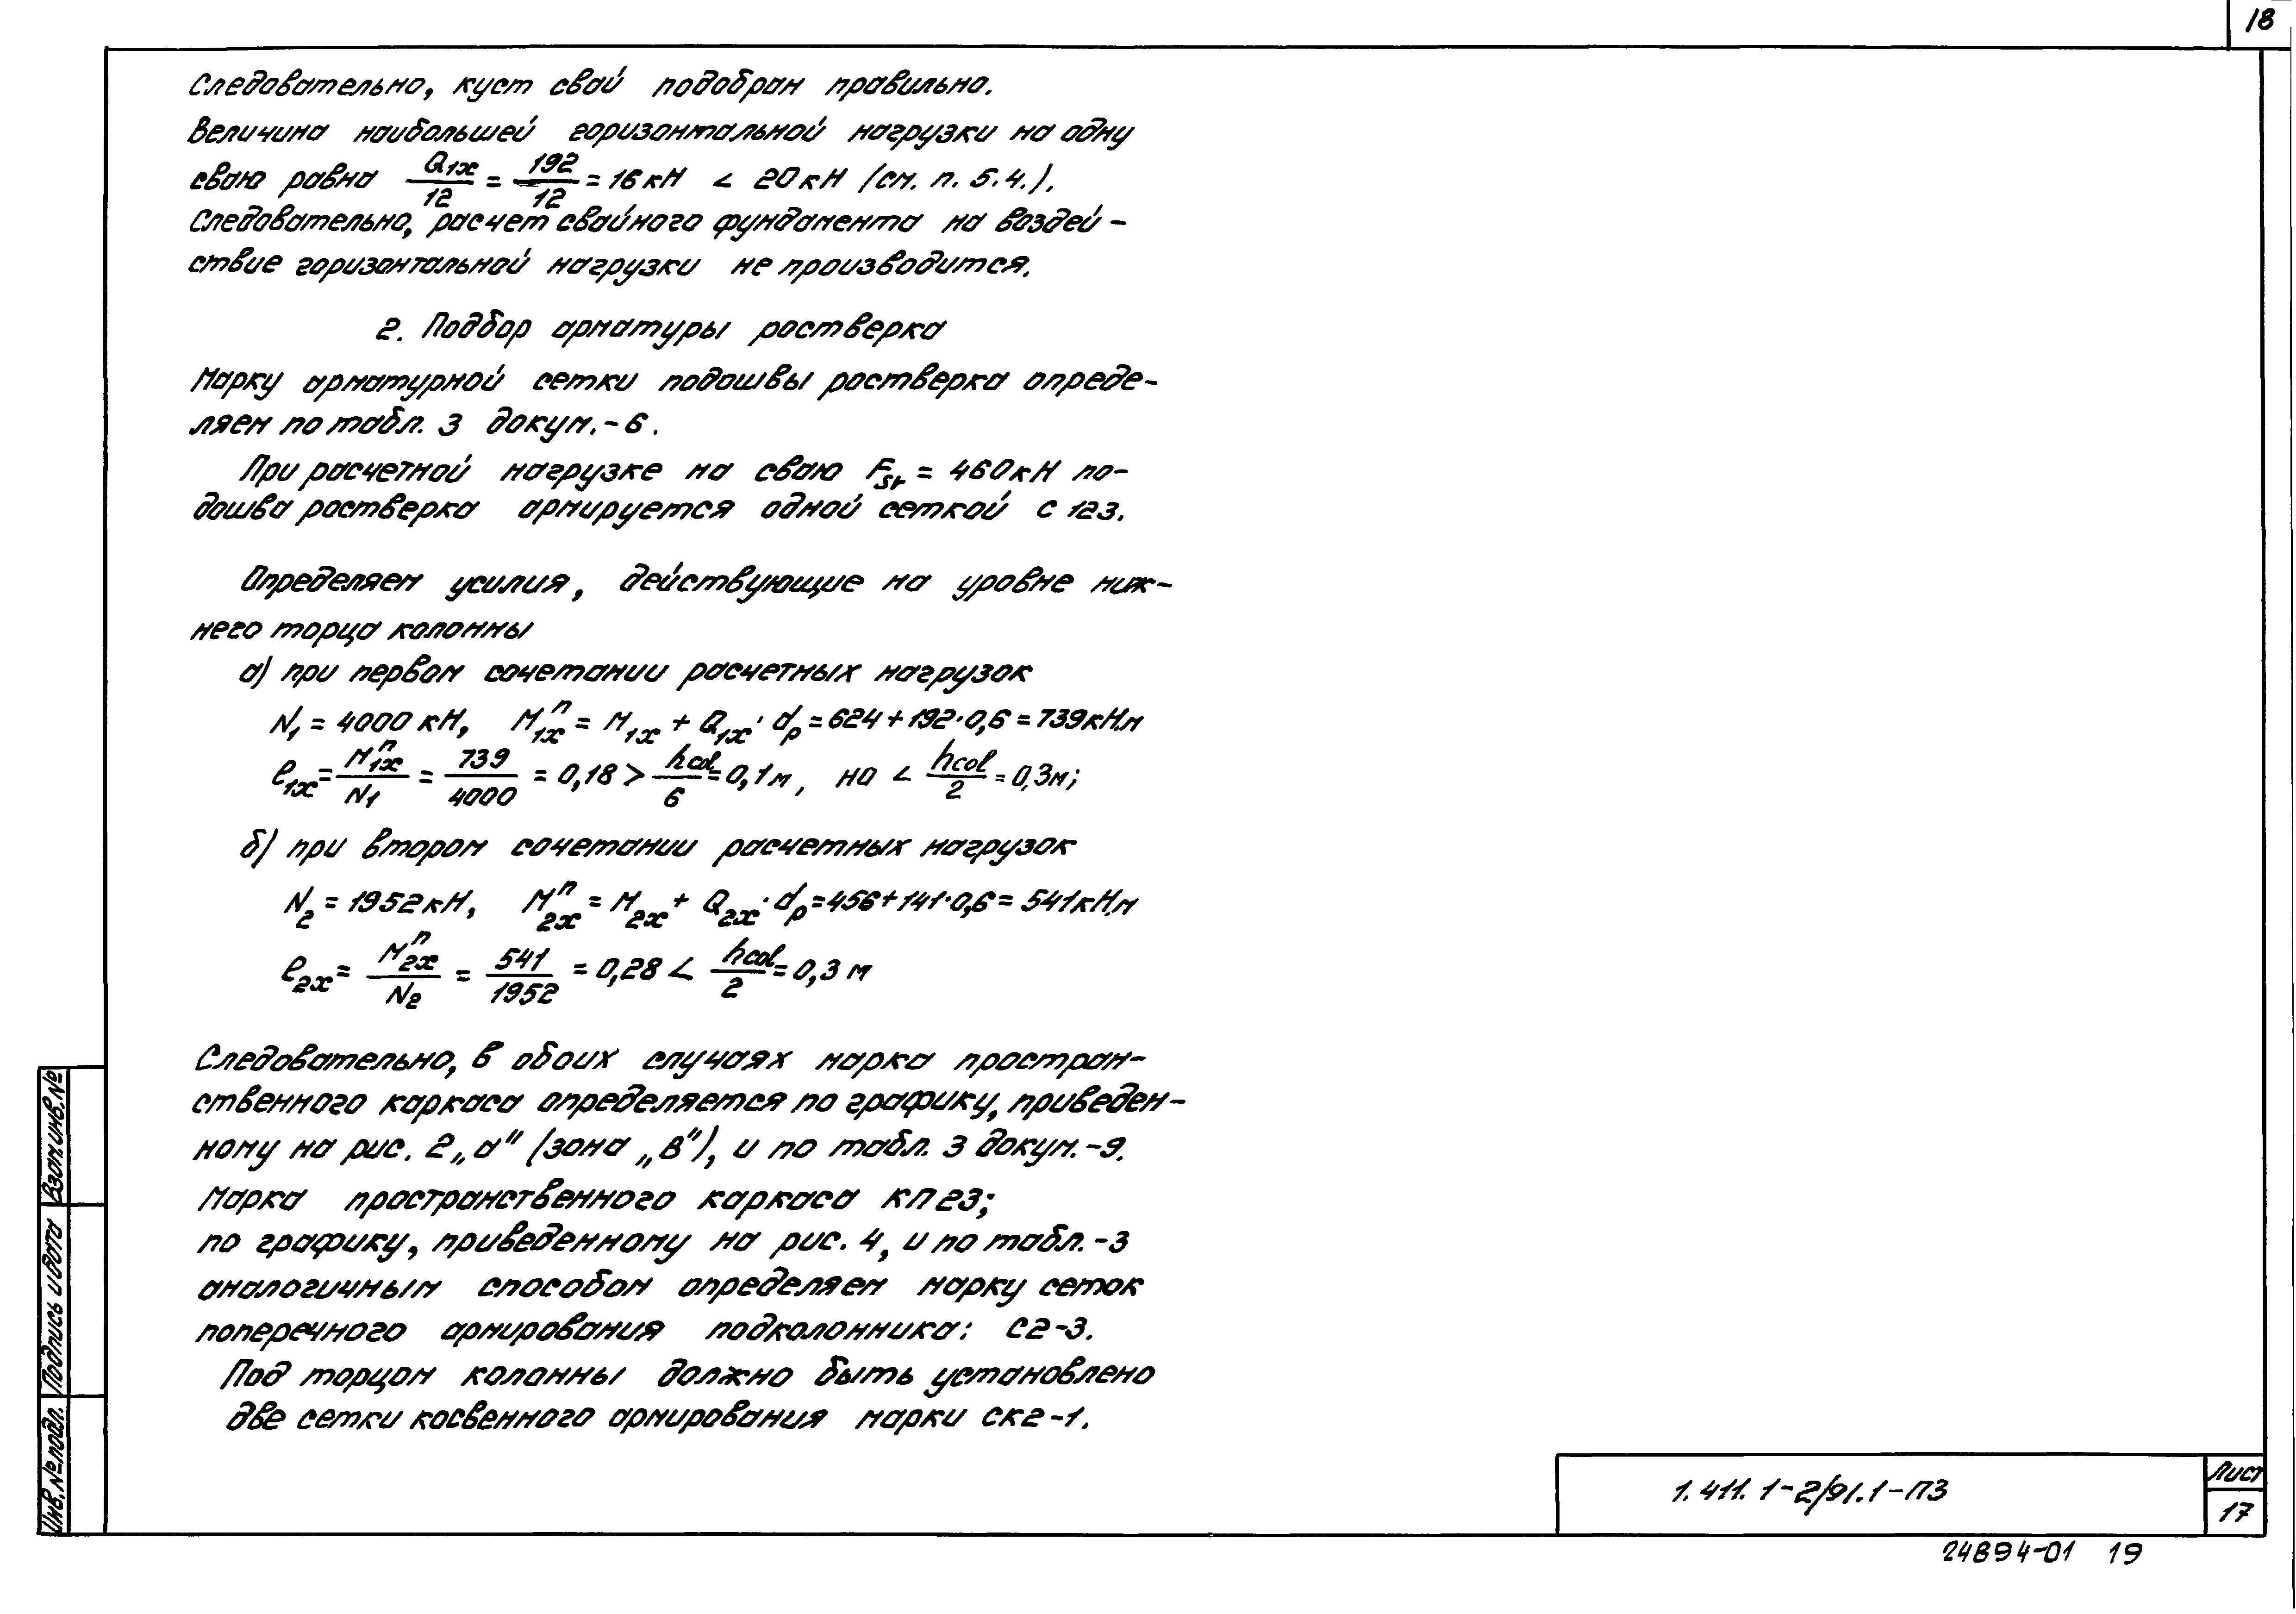 18
Следовательно, куст свай подобран правильно.
Величина наибольшей горизонтальной нагрузки на одну
сваю равна Q1x/12 = 192/12 = 16 кН < 20 кН (см. п. 5.4.).
Следовательно, расчет свайного фундамента на воздей-
ствие горизонтальной нагрузки не производится.
2. Подбор арматуры ростверка
Марку арматурной сетки подошвы ростверка опреде-
ляем по табл. 3 докум.-6.
При расчетной нагрузке на сваю Fsr = 460 кН по-
дошва ростверка армируется одной сеткой С 123.
Определяем усилия, действующие на уровне ниж-
него торца колонны
а) при первом сочетании расчетных нагрузок
N1 = 4000 кН, M1x^п = M1x + Q1x · dp = 624 + 192·0,6 = 739 кН.м
e1x = M1x^п/N1 = 739/4000 = 0,18 > hcol/6 = 0,1 м, но < hcol/2 = 0,3м;
б) при втором сочетании расчетных нагрузок
N2 = 1952 кН, M2x^п = M2x + Q2x · dp = 456 + 141·0,6 = 541 кН.м
e2x = M2x^п/N2 = 541/1952 = 0,28 < hcol/2 = 0,3 м
Следовательно, в обоих случаях марка простран-
ственного каркаса определяется по графику, приведен-
ному на рис. 2 „а" (зона „В"), и по табл. 3 докум.-9.
Марка пространственного каркаса КП 23;
по графику, приведенному на рис. 4, и по табл.-3
аналогичным способом определяем марку сеток
поперечного армирования подколонника: С2-3.
Под торцом колонны должно быть установлено
две сетки косвенного армирования марки СК2-1.
Взам.инв.№
Подпись и дата
Инв.№ подл.
1.411.1-2/91.1-ПЗ
Лист
17
24894-01 19